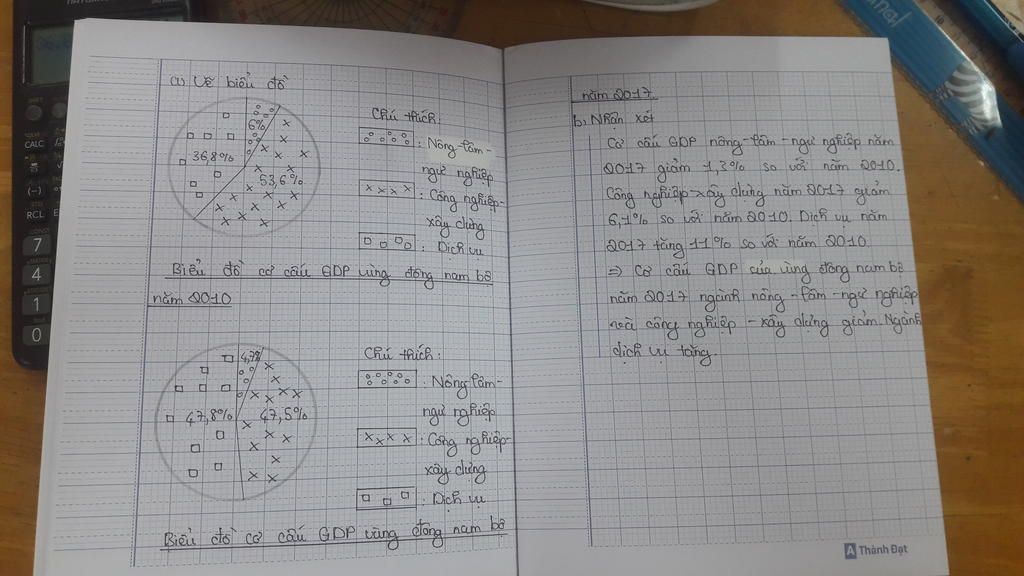 a) Vẽ biểu đồ
6%
36,8%
53,6%
Chú thích:
: Nông-lâm-
ngư nghiệp
: Công nghiệp-
xây dựng
: Dịch vụ
Biểu đồ cơ cấu GDP vùng đông nam bộ
năm 2010
4,7%
47,8%
47,5%
Chú thích:
: Nông-lâm-
ngư nghiệp
: Công nghiệp-
xây dựng
: Dịch vụ
Biểu đồ cơ cấu GDP vùng đông nam bộ
năm 2017
b, Nhận xét
Cơ cấu GDP nông-lâm-ngư nghiệp năm
2017 giảm 1,3% so với năm 2010.
Công nghiệp-xây dựng năm 2017 giảm
6,1% so với năm 2010. Dịch vụ năm
2017 tăng 11% so với năm 2010.
⇒ Cơ cấu GDP của vùng đông nam bộ
năm 2017 ngành nông-lâm-ngư nghiệp
và công nghiệp - xây dựng giảm. Ngành
dịch vụ tăng.
A Thành Đạt
CALC
(-)
RCL
7
4
1
0